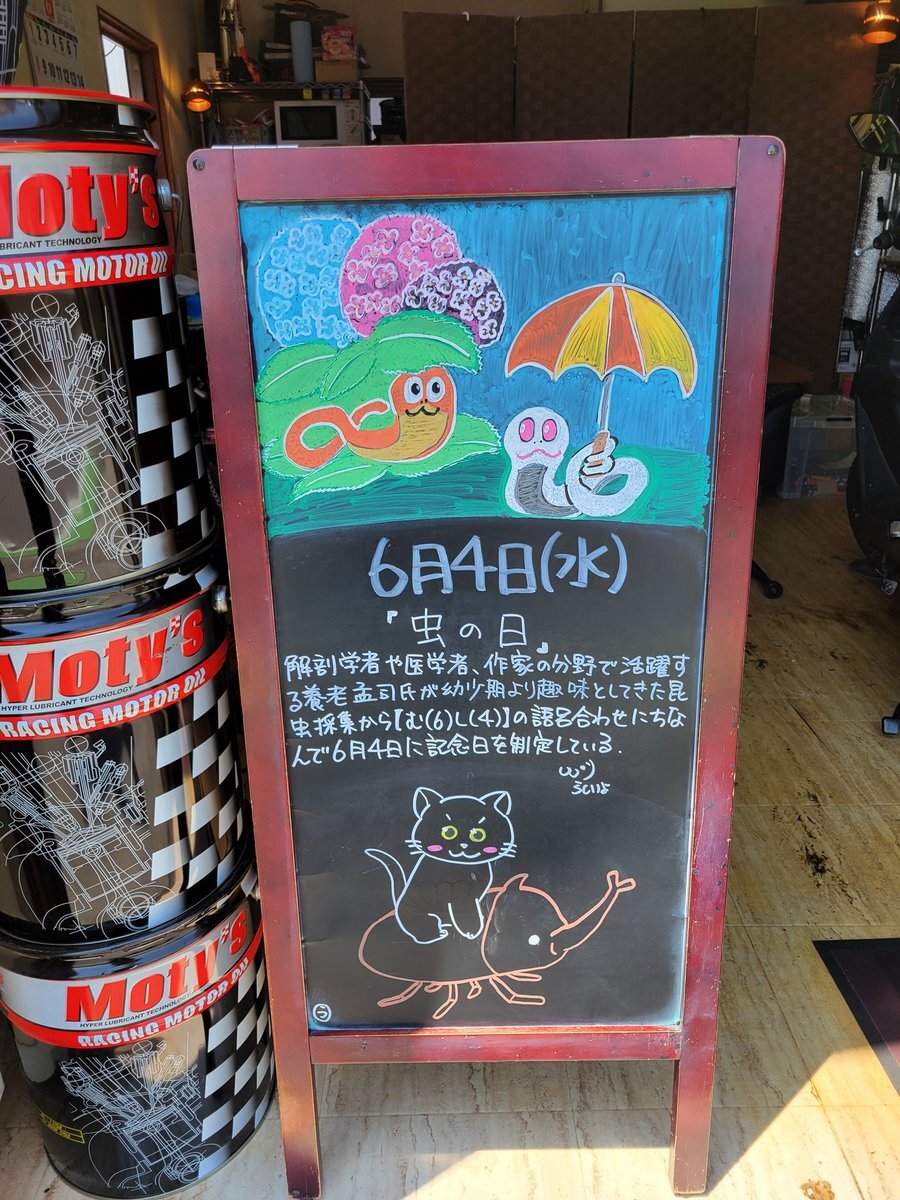 Moty's
LUBRICANT TECHNOLOGY
RACING MOTOR OIL
Moty's
HYPER LUBRICANT TECHNOLOGY
RACING MOTOR OIL
Moty's
HYPER LUBRICANT TECHNOLOGY
RACING MOTOR OIL
6月4日(水)
『虫の日』
解剖学者や医学者、作家の分野で活躍す
る養老孟司氏が幼少期より趣味としてきた昆
虫採集から【む(6)し(4)】の語呂合わせにちな
んで6月4日に記念日を制定している.